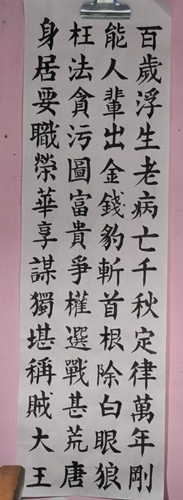 百歲浮生老病亡千秋定律萬年剛
能人輩出金錢豹斬首根除白眼狼
枉法貪污圖富貴爭權選戰甚荒唐
身居要職榮華享謀獨堪稱賊大王